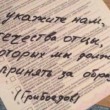 укажите нам,
отечества отцы,
которых мы должны
принять за образ
(Грибоедов)